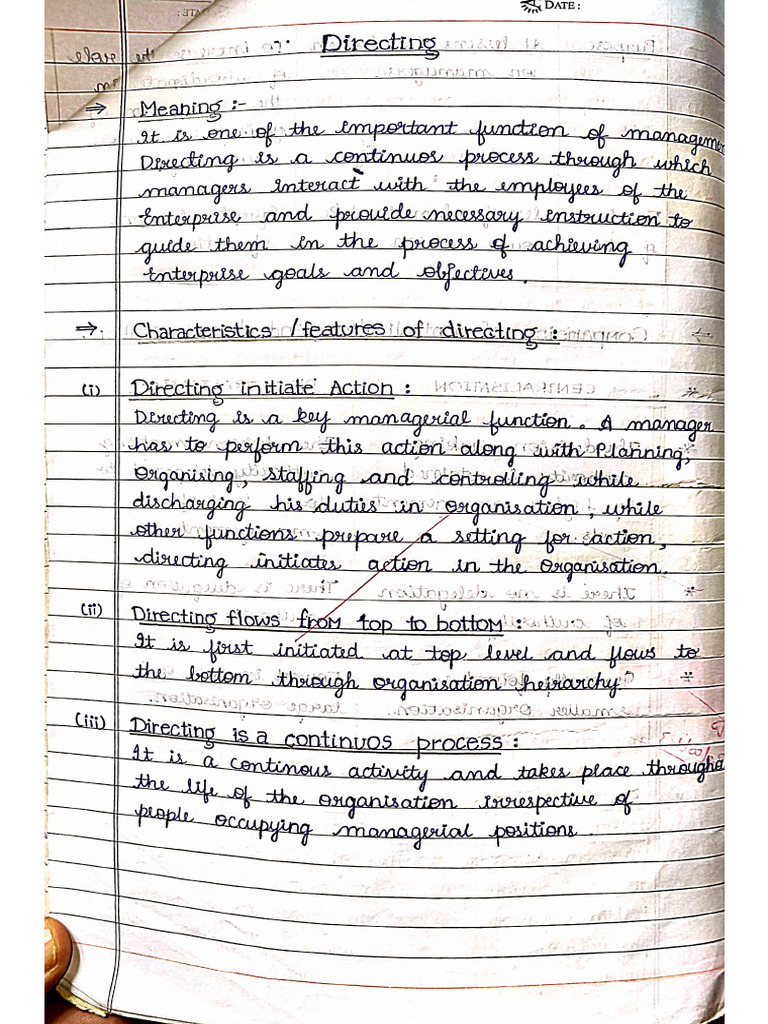 DATE:
Directing
→ Meaning :-
It is one of the important function of managemen
Directing is a continuos process through which
managers interact with the employees of the
Enterprise and provide necessary instruction to
guide them in the process of achieving
Enterprise goals and objectives.
→ Characteristics /features of directing :
(i) Directing initiate Action :
Directing is a key managerial function. A manager
has to perform this action along with Planning,
organising, staffing and controlling while
discharging his duties in organisation, while
other functions prepare a setting for action,
directing initiates action in the organisation.
(ii) Directing flows from top to bottom :
It is first initiated at top level and flows to
the bottom through organisation heirarchy.
(iii) Directing is a continuos process :
It is a continous activity and takes place through
the life of the organisation irrespective of
people occupying managerial positions.